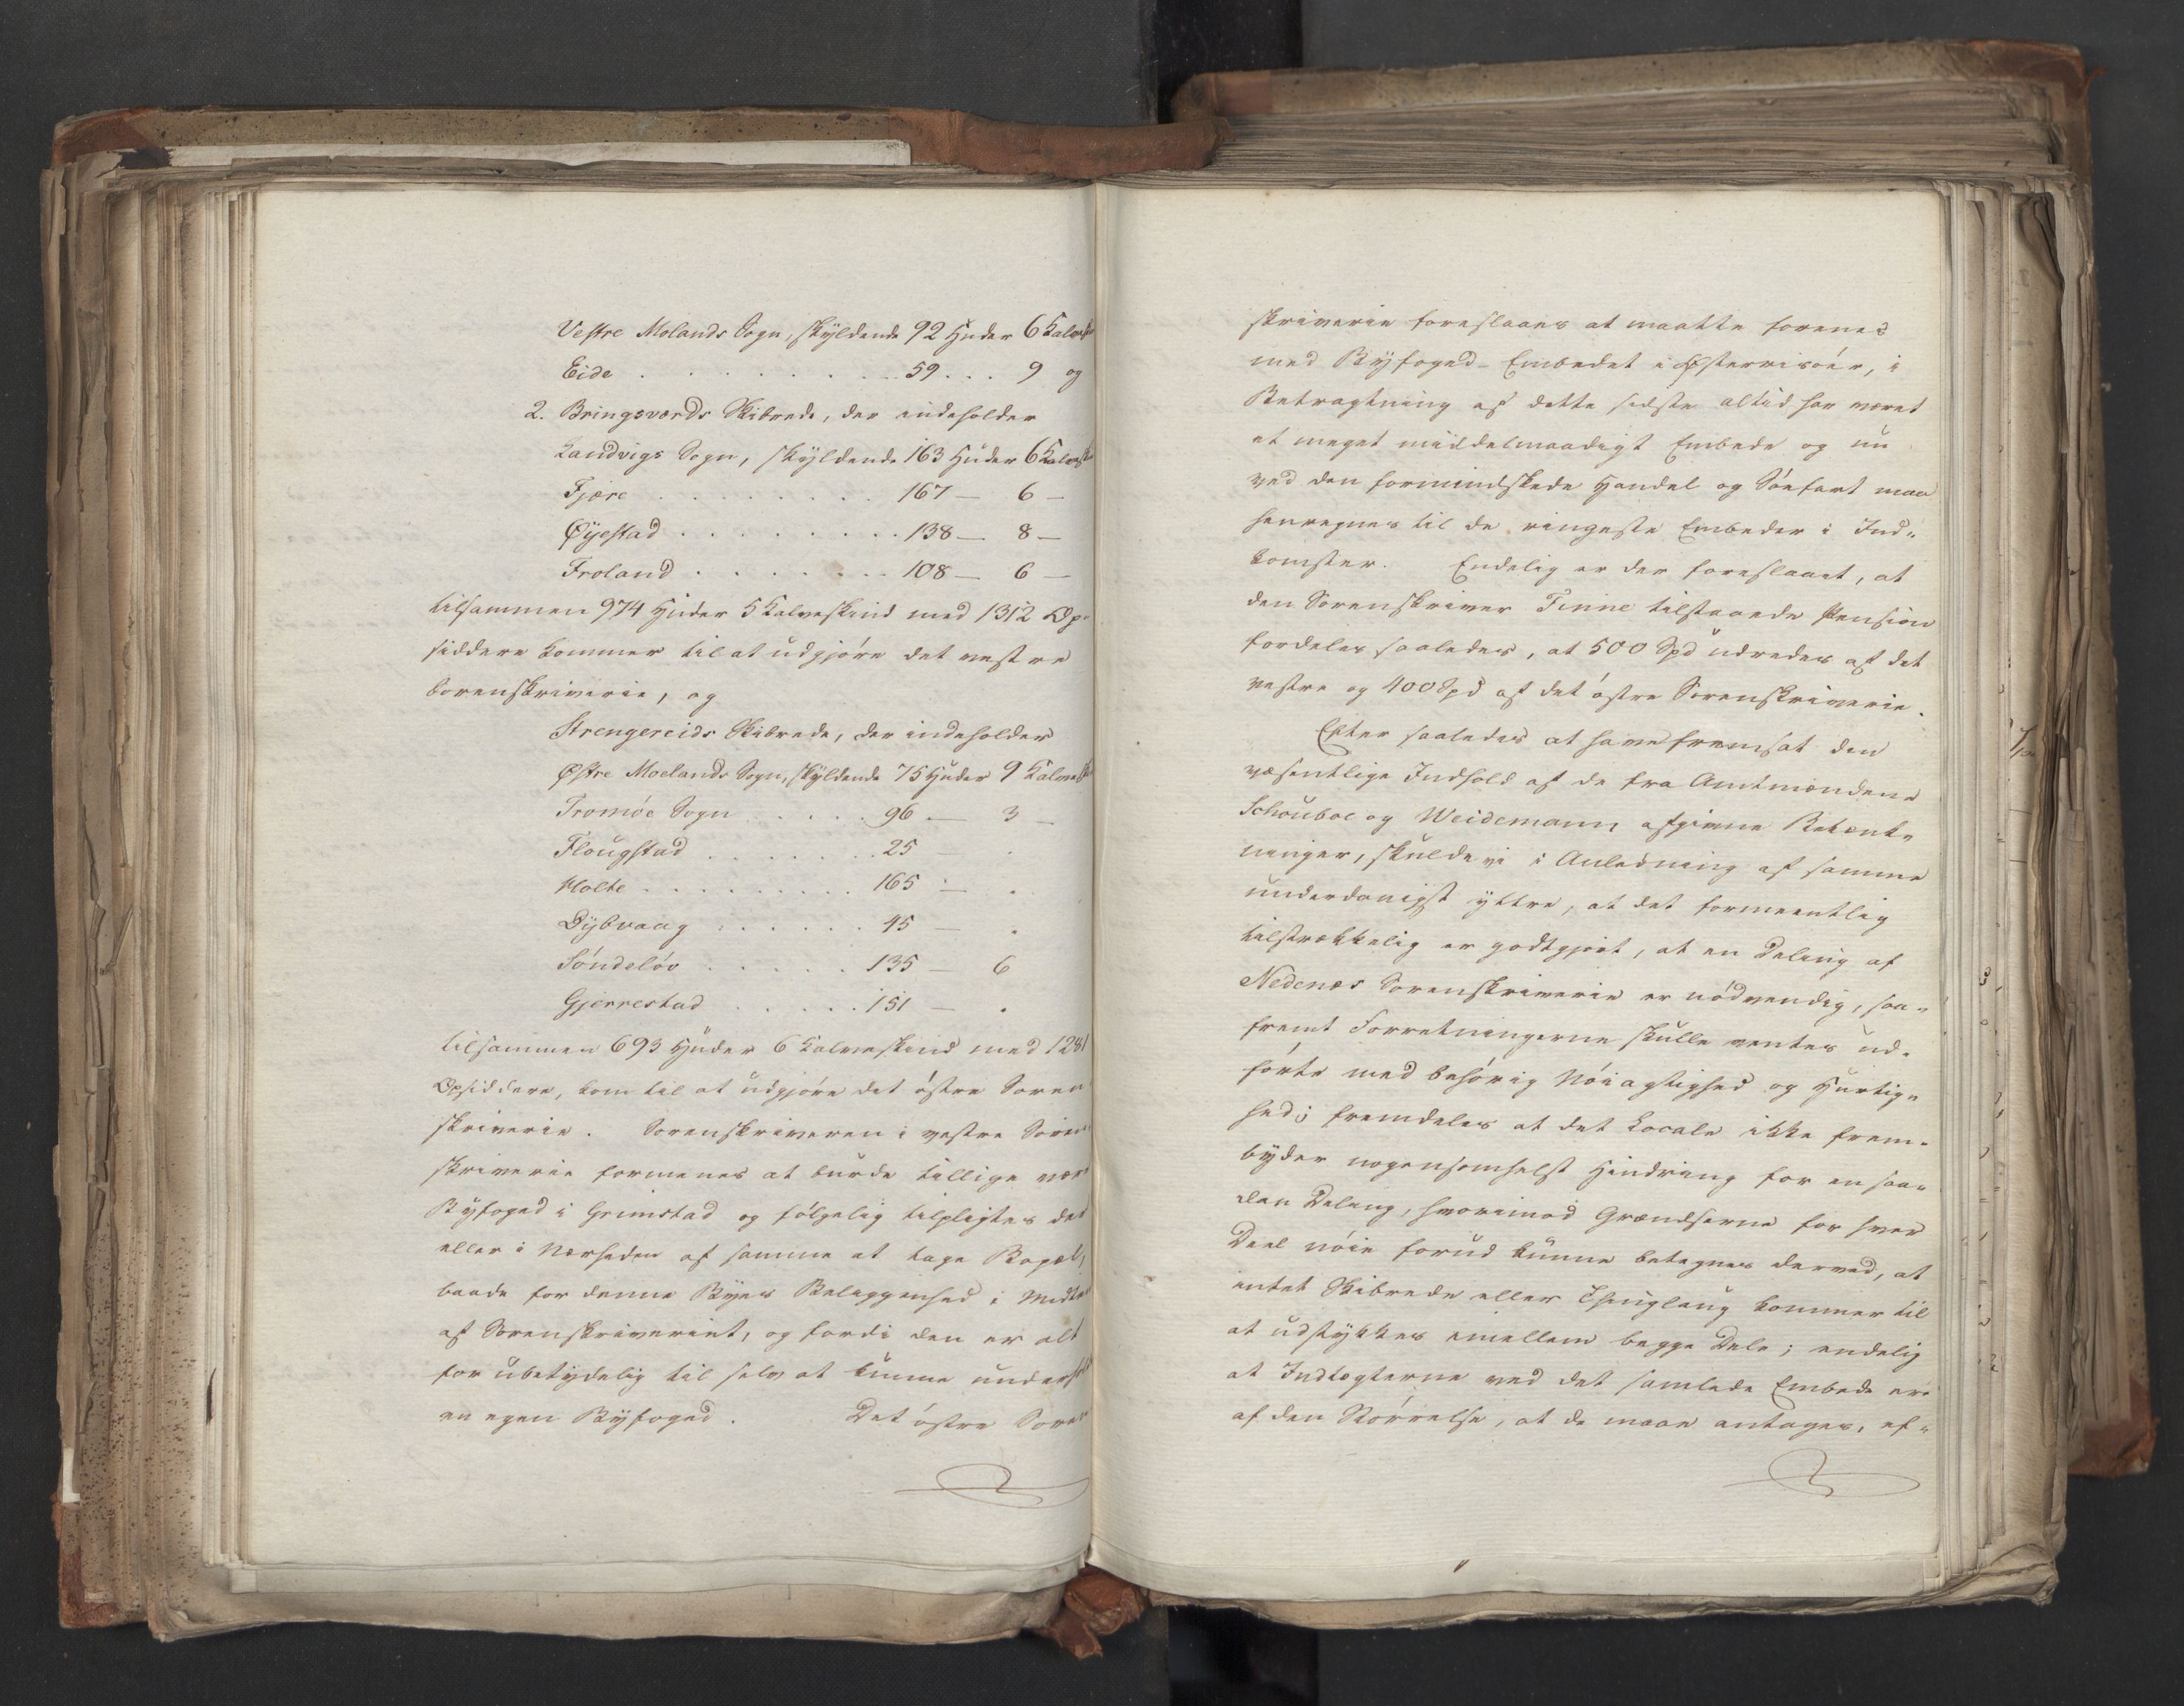 Vestre Molands Sogn, skyldende 92 Huder 6 Kalveski
Eide . . . . . . . . 59 . . . 9 og
2. Bringsværds Skibrede, der indeholder
Landvigs Sogn, skyldende 163 Huder 6 Kalvesk
Fjære . . . . . . . . 167 — 6 —
Øyestad . . . . . . . . 138 — 8 —
Froland . . . . . . . 108 — 6 —
tilsammen 974 Huder 5 Kalveskind med 1312 Op-
siddere kommer til at udgjöre det vestre
Sorenskriverie, og
Strengereids Skibrede, der indeholder
Østre Moelands Sogn, skyldende 75 Huder 9 Kalvesk
Tromöe Sogn . . . . . 96 — 3 —
Flougstad . . . . . . . 25 — .
Holte . . . . . . . . . 165 — .
Dybvaag . . . . . . 45 — .
Söndelöv . . . . . 135 — 6
Gjerrestad . . . . . 151 — .
tilsammen 693 Huder 6 Kalveskind med 1281
Opsiddere, kom til at udgjöre det östre Soren
skriverie. Sorenskriveren i vestre Soren
skriverie formenes at burde tillige være
Byfoged i Grimstad og fölgelig tilpligtes det
eller i Nærheden af samme at tage Bopæl,
baade for denne Byes Beliggenhed i Midten
af Sorenskriveriet, og fordi den er alt
for ubetydelig til selv at kunne underhol
en egen Byfoged. Det östre Soren
skriverie foreslaaes at maatte forenes
med Byfoged-Embedet i Østerrisöer, i
Betragtning af dette sidste altid har været
et meget middelmaadigt Embede og nu
ved den formindskede Handel og Söefart maa
henregnes til de ringeste Embeder i Ind-
komster. Endelig er der foreslaaet, at
den Sorenskriver Finne tilstaaede Pension
fordeles saaledes, at 500 Spd udredes af det
vestre og 400 Spd af det östre Sorenskriverie.
Efter saaledes at have fremsat den
væsentlige Indhold af de fra Amtmændene
Schouboe og Weidemann afgivne Betænk-
ninger, skulde vi i Anledning af samme
underdanigst yttre, at det formeentlig
tilstrækkelig er godtgjort, at en Deling af
Nedenæs Sorenskriverie er nödvendig, saa-
fremt Forretningerne skulle ventes ud-
förte med behörig Nöiagtighed og Hurtig-
hed; fremdeles at det Locale ikke frem-
byder nogensomhelst Hindring for en saa-
dan Deling, hvorimod Grændserne for hver
Deel nöie forud kunne betegnes derved, at
intet Skibrede eller Thinglaug kommer til
at udstykkes imellem begge Dele; endelig
at Indtægterne ved det samlede Embede ere
af den Störrelse, at de maae antages, ef-